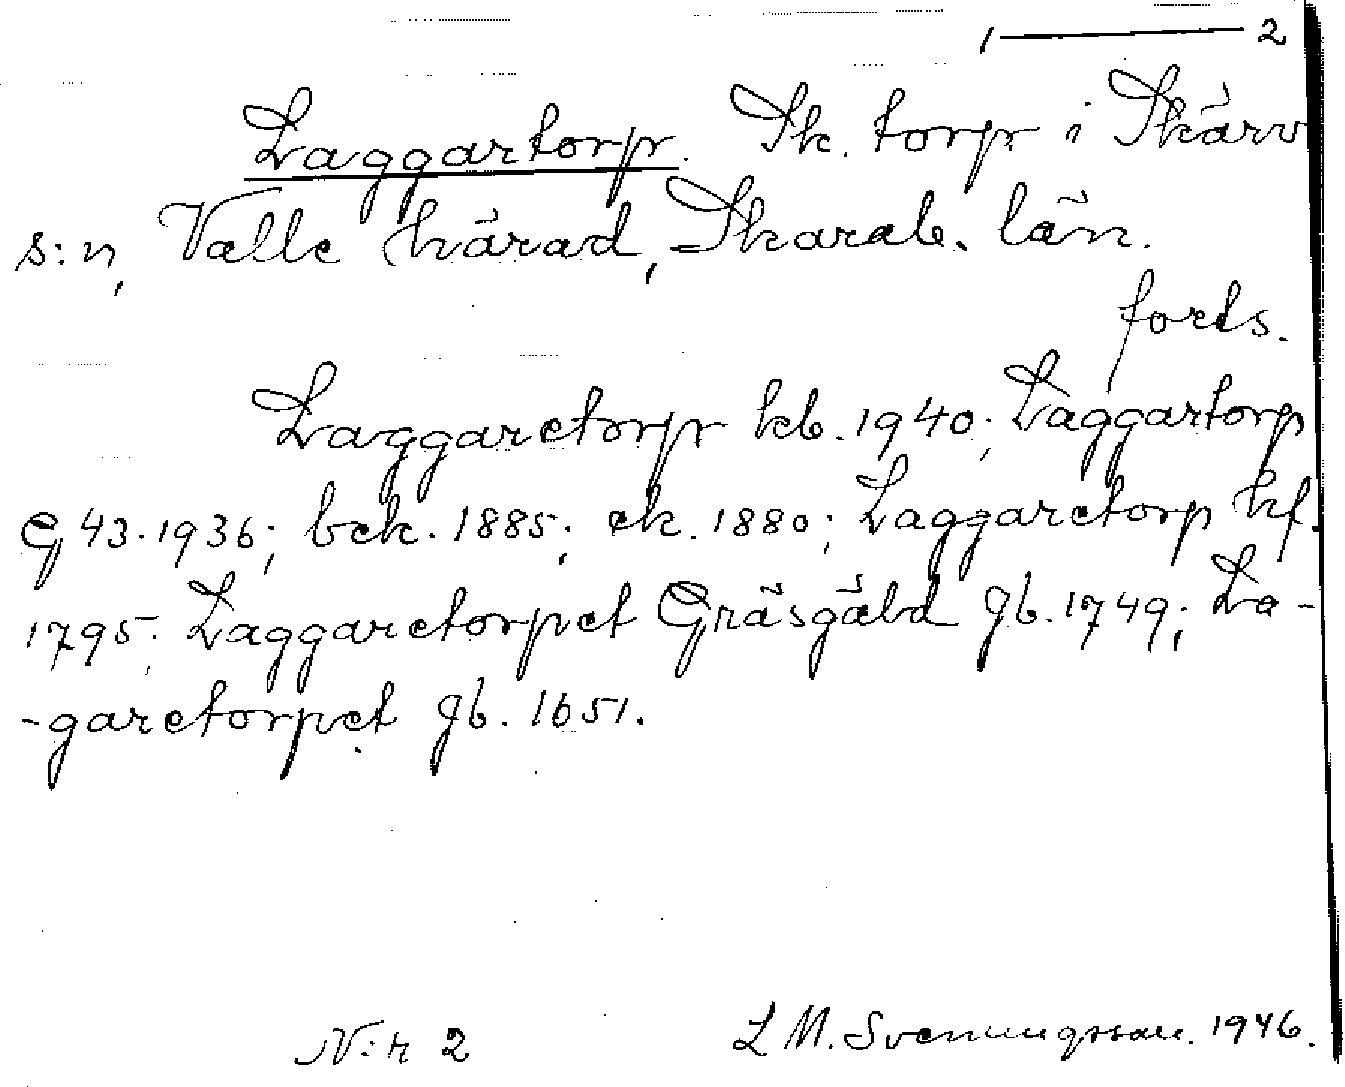 1 — 2
Laggartorp. Sk. torp i Skärv
s:n, Valle härad, Skarab. län.
forts.
Laggaretorp kb. 1940; Laggartorp
G 43. 1936; bek. 1885; ek. 1880; Laggaretorp hf.
1795; Laggaretorpet Gräsgäld gb. 1749; La-
-garetorpet gb. 1651.
N:r 2 L M. Svenungsson. 1946.